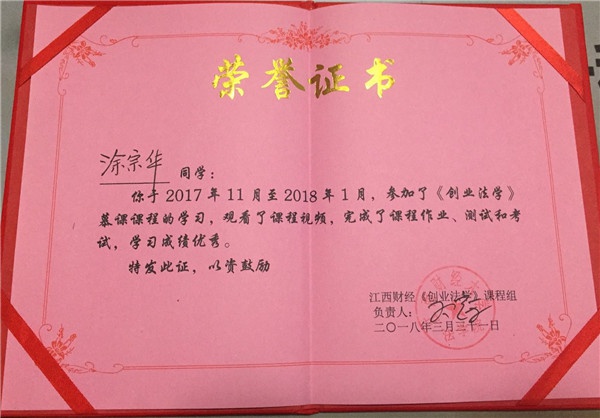 荣誉证书
涂宗华 同学：
你于 2017 年 11 月至 2018 年 1 月，参加了《创业法学》
慕课课程的学习，观看了课程视频，完成了课程作业、测试和考
试，学习成绩优秀。
特发此证，以资鼓励
江西财经《创业法学》课程组
负责人：
二〇一八年三月三十一日